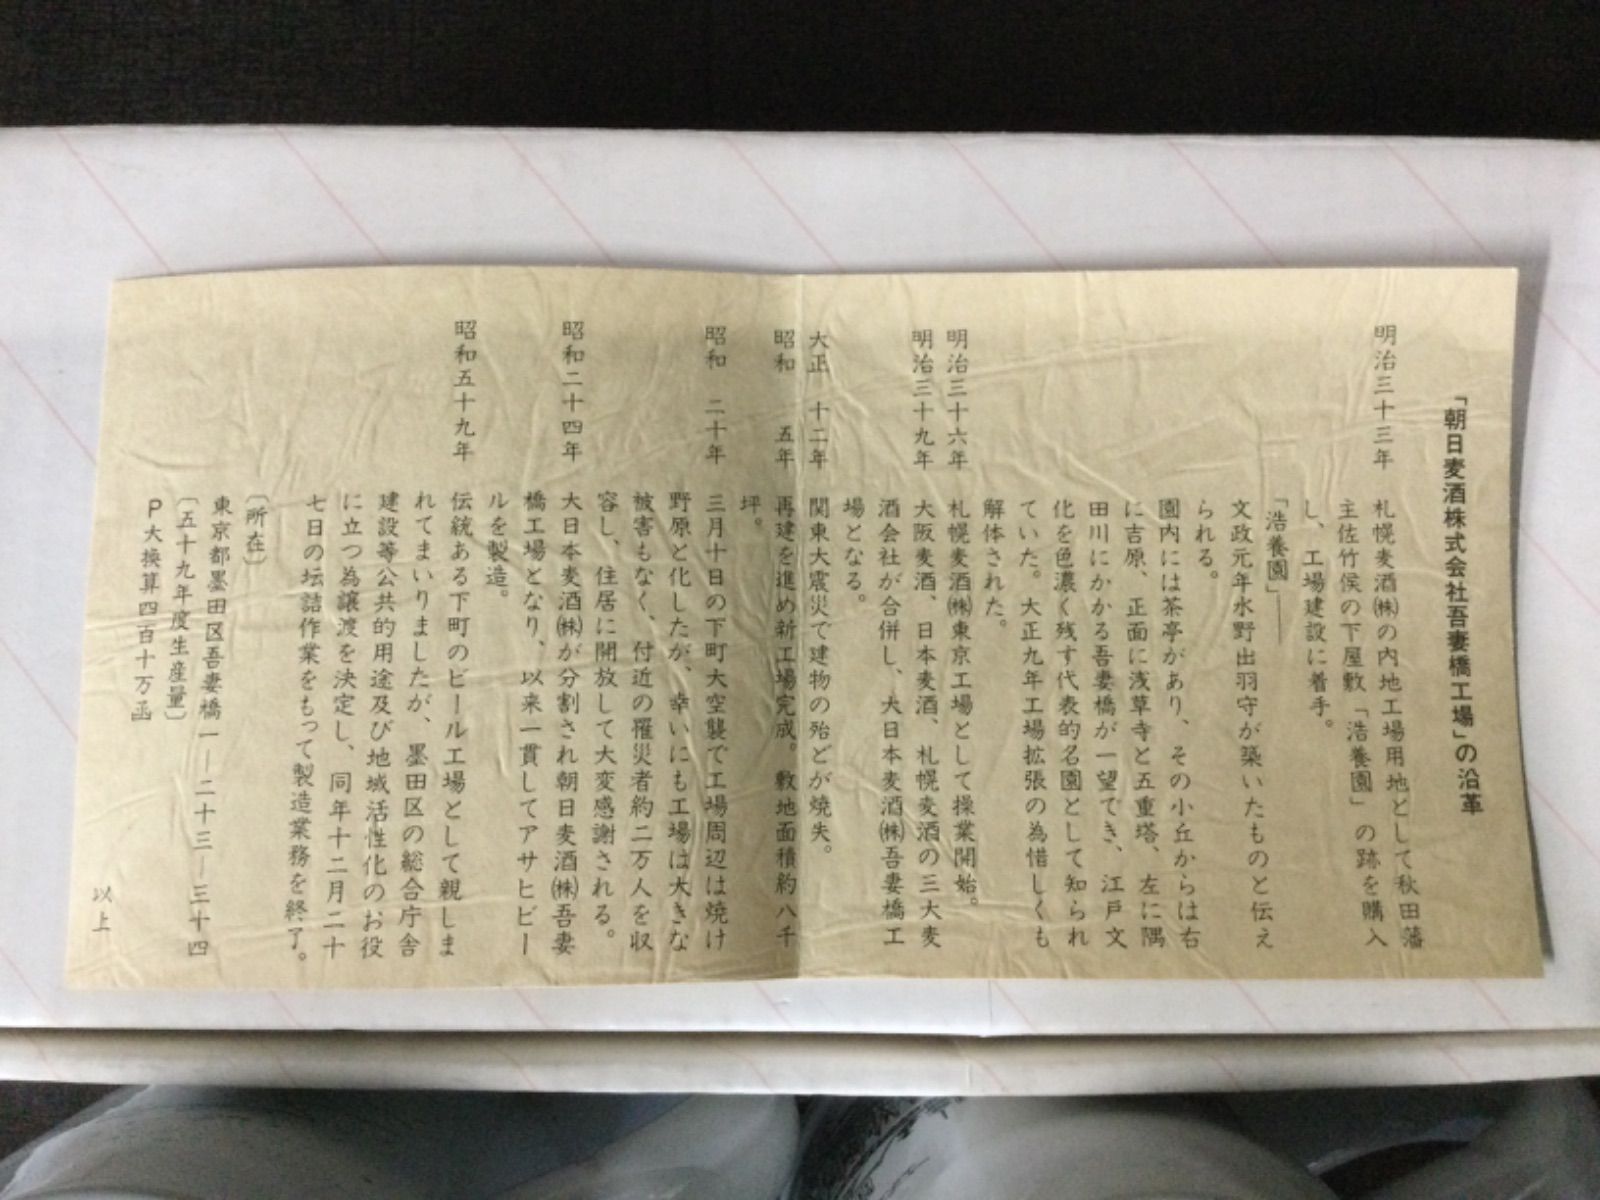 「朝日麦酒株式会社吾妻橋工場」の沿革
明治三十三年 札幌麦酒㈱の内地工場用地として秋田藩
主佐竹侯の下屋敷「浩養園」の跡を購入
し、工場建設に着手。
「浩養園」——
文政元年水野出羽守が築いたものと伝え
られる。
園内には茶亭があり、その小丘からは右
に吉原、正面に浅草寺と五重塔、左に隅
田川にかかる吾妻橋が一望でき、江戸文
化を色濃く残す代表的名園として知られ
ていた。大正九年工場拡張の為惜しくも
解体された。
明治三十六年 札幌麦酒㈱東京工場として操業開始。
明治三十九年 大阪麦酒、日本麦酒、札幌麦酒の三大麦
酒会社が合併し、大日本麦酒㈱吾妻橋工
場となる。
大正 十二年 関東大震災で建物の殆どが焼失。
昭和 五年 再建を進め新工場完成。敷地面積約八千
坪。
昭和 二十年 三月十日の下町大空襲で工場周辺は焼け
野原と化したが、幸いにも工場は大きな
被害もなく、付近の罹災者約二万人を収
容し、住居に開放して大変感謝される。
昭和二十四年 大日本麦酒㈱が分割され朝日麦酒㈱吾妻
橋工場となり、以来一貫してアサヒビー
ルを製造。
昭和五十九年 伝統ある下町のビール工場として親しま
れてまいりましたが、墨田区の総合庁舎
建設等公共的用途及び地域活性化のお役
に立つ為譲渡を決定し、同年十二月二十
七日の壜詰作業をもって製造業務を終了。
〔所在〕
東京都墨田区吾妻橋一—二十三—三十四
〔五十九年度生産量〕
P大換算四百十万函
以上